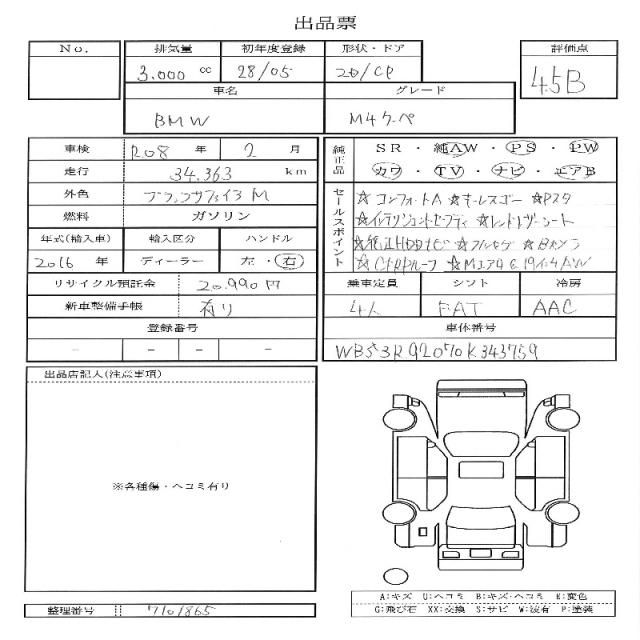 出品票
No. 排気量 初年度登録 形状・ドア 評価点
3.000 cc 28/05 2D/CP 4.5B
車名 グレード
BMW M4クーペ
車検 R08 年 2 月
走行 34.363 km
外色 ブラックサファイアM
燃料 ガソリン
年式(輸入車) 輸入区分 ハンドル
2016 年 ディーラー 左・右
リサイクル預託金 20.990円
新車整備手帳 有り
登録番号
- - - -
純正品 SR・純AW・PS・PW
カワ・TV・ナビ・エアB
セールスポイント
☆コンフォートA ☆キーレスゴー ☆Pスタ
☆レッドレザーシート
☆純正HDDナビ ☆フルセグ ☆Bカメラ
☆CFRPルーフ ☆Mエアロ&19インチAW
乗車定員 シフト 冷房
4人 FAT AAC
車体番号
WBS3R92070K343759
出品店記入(注意事項)
※各種傷・ヘコミ有り
整理番号 7101865
A:キズ U:ヘコミ B:キズ・ヘコミ E:変色
G:飛び石 XX:交換 S:サビ W:波有 P:塗装